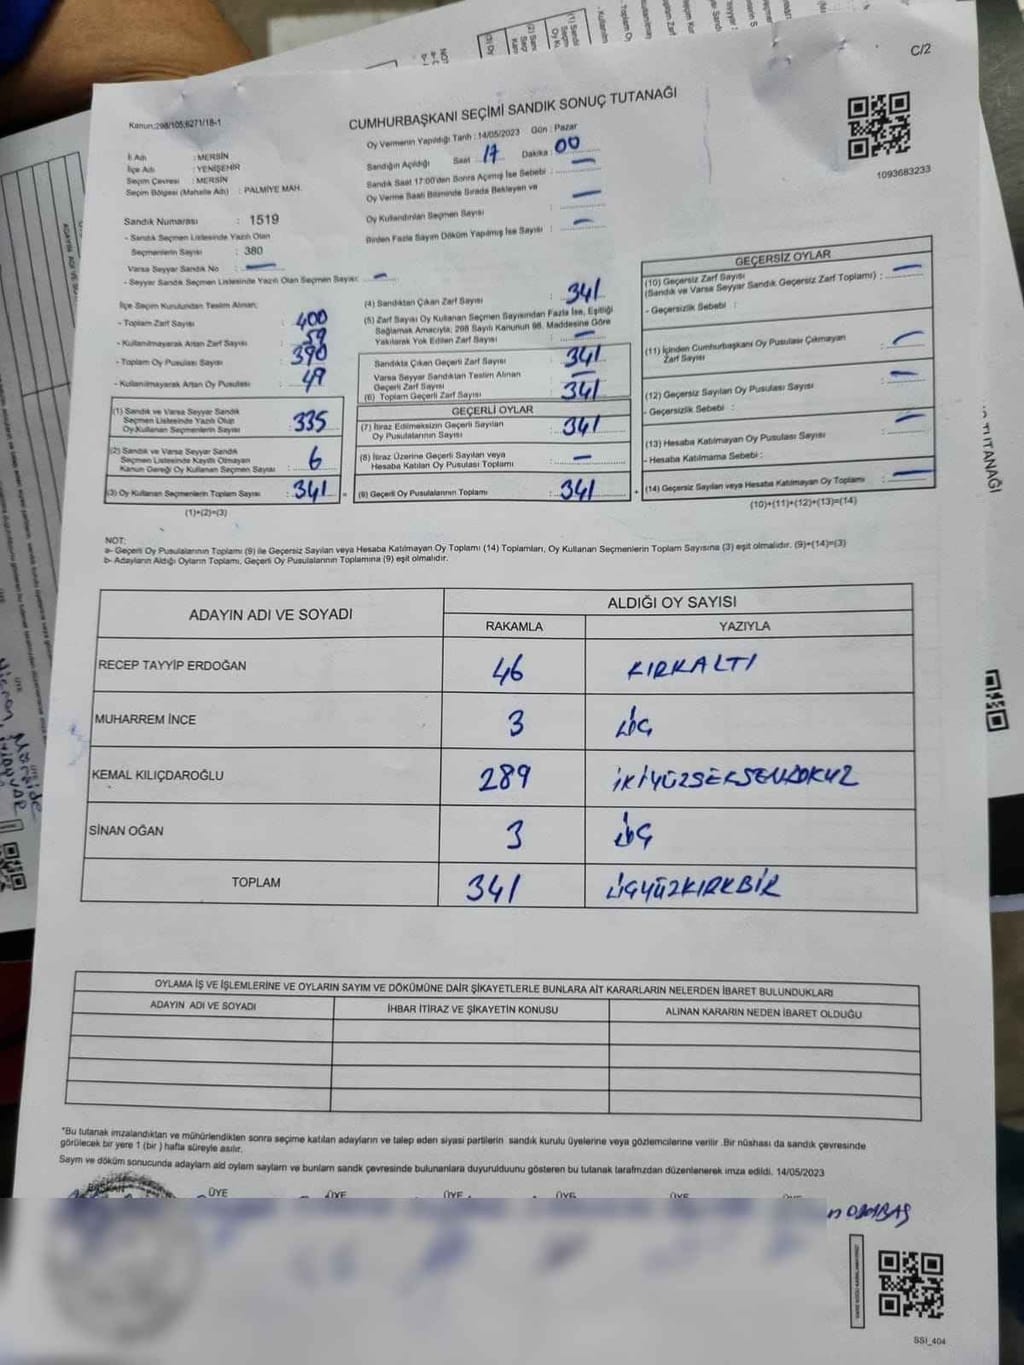 C/2
Kanun:298/105,6271/18-1
CUMHURBAŞKANI SEÇİMİ SANDIK SONUÇ TUTANAĞI
1093683233
İl Adı : MERSİN
İlçe Adı : YENİŞEHİR
Seçim Çevresi : MERSİN
Seçim Bölgesi (Mahalle Adı) : PALMİYE MAH.
Sandık Numarası : 1519
- Sandık Seçmen Listesinde Yazılı Olan
Seçmenlerin Sayısı : 380
Varsa Seyyar Sandık No : —
- Seyyar Sandık Seçmen Listesinde Yazılı Olan Seçmen Sayısı: —
Oy Vermenin Yapıldığı Tarih : 14/05/2023 Gün : Pazar
Sandığın Açıldığı Saat : 17 Dakika : 00
Sandık Saat 17:00'den Sonra Açılmış İse Sebebi : —
Oy Verme Saati Bitiminde Sırada Bekleyen ve
Oy Kullandırılan Seçmen Sayısı : —
Birden Fazla Sayım Döküm Yapılmış İse Sayısı : —
İlçe Seçim Kurulundan Teslim Alınan;
- Toplam Zarf Sayısı : 400
- Kullanılmayarak Artan Zarf Sayısı : 59
- Toplam Oy Pusulası Sayısı : 390
- Kullanılmayarak Artan Oy Pusulası : 49
(1) Sandık ve Varsa Seyyar Sandık
Seçmen Listesinde Yazılı Olup
Oy Kullanan Seçmenlerin Sayısı : 335
(2) Sandık ve Varsa Seyyar Sandık
Seçmen Listesinde Kayıtlı Olmayan
Kanun Gereği Oy Kullanan Seçmen Sayısı : 6
(3) Oy Kullanan Seçmenlerin Toplam Sayısı : 341
(1)+(2)=(3)
(4) Sandıktan Çıkan Zarf Sayısı : 341
(5) Zarf Sayısı Oy Kullanan Seçmen Sayısından Fazla İse, Eşitliği
Sağlamak Amacıyla; 298 Sayılı Kanunun 98. Maddesine Göre
Yakılarak Yok Edilen Zarf Sayısı : —
Sandıkta Çıkan Geçerli Zarf Sayısı : 341
Varsa Seyyar Sandıktan Teslim Alınan
Geçerli Zarf Sayısı : —
(6) Toplam Geçerli Zarf Sayısı : 341
GEÇERLİ OYLAR
(7) İtiraz Edilmeksizin Geçerli Sayılan
Oy Pusulalarının Sayısı : 341
(8) İtiraz Üzerine Geçerli Sayılan veya
Hesaba Katılan Oy Pusulası Toplamı : —
(9) Geçerli Oy Pusulalarının Toplamı : 341
GEÇERSİZ OYLAR
(10) Geçersiz Zarf Sayısı
(Sandık ve Varsa Seyyar Sandık Geçersiz Zarf Toplamı) : —
- Geçersizlik Sebebi :
(11) İçinden Cumhurbaşkanı Oy Pusulası Çıkmayan
Zarf Sayısı : —
(12) Geçersiz Sayılan Oy Pusulası Sayısı : —
- Geçersizlik Sebebi :
(13) Hesaba Katılmayan Oy Pusulası Sayısı : —
- Hesaba Katılmama Sebebi :
(14) Geçersiz Sayılan veya Hesaba Katılmayan Oy Toplamı : —
(10)+(11)+(12)+(13)=(14)
NOT:
a- Geçerli Oy Pusulalarının Toplamı (9) ile Geçersiz Sayılan veya Hesaba Katılmayan Oy Toplamı (14) Toplamları, Oy Kullanan Seçmenlerin Toplam Sayısına (3) eşit olmalıdır. (9)+(14)=(3)
b- Adayların Aldığı Oyların Toplamı, Geçerli Oy Pusulalarının Toplamına (9) eşit olmalıdır.
ADAYIN ADI VE SOYADI
ALDIĞI OY SAYISI
RAKAMLA YAZIYLA
RECEP TAYYİP ERDOĞAN 46 KIRKALTI
MUHARREM İNCE 3 ÜÇ
KEMAL KILIÇDAROĞLU 289 İKİYÜZSEKSENDOKUZ
SİNAN OĞAN 3 ÜÇ
TOPLAM 341 ÜÇYÜZKIRKBİR
OYLAMA İŞ VE İŞLEMLERİNE VE OYLARIN SAYIM VE DÖKÜMÜNE DAİR ŞİKAYETLERLE BUNLARA AİT KARARLARIN NELERDEN İBARET BULUNDUKLARI
ADAYIN ADI VE SOYADI İHBAR İTİRAZ VE ŞİKAYETİN KONUSU ALINAN KARARIN NEDEN İBARET OLDUĞU
*Bu tutanak imzalandıktan ve mühürlendikten sonra seçime katılan adayların ve talep eden siyasi partilerin sandık kurulu üyelerine veya gözlemcilerine verilir .Bir nüshası da sandık çevresinde
görülecek bir yere 1 (bir ) hafta süreyle asılır.
Sayım ve döküm sonucunda adayların ald oyların sayıları ve bunların sandık çevresinde bulunanlara duyurulduunu gösteren bu tutanak tarafımızdan düzenlenerek imza edildi. 14/05/2023
BAŞKAN ÜYE ÜYE ÜYE ÜYE ÜYE
SSİ_404